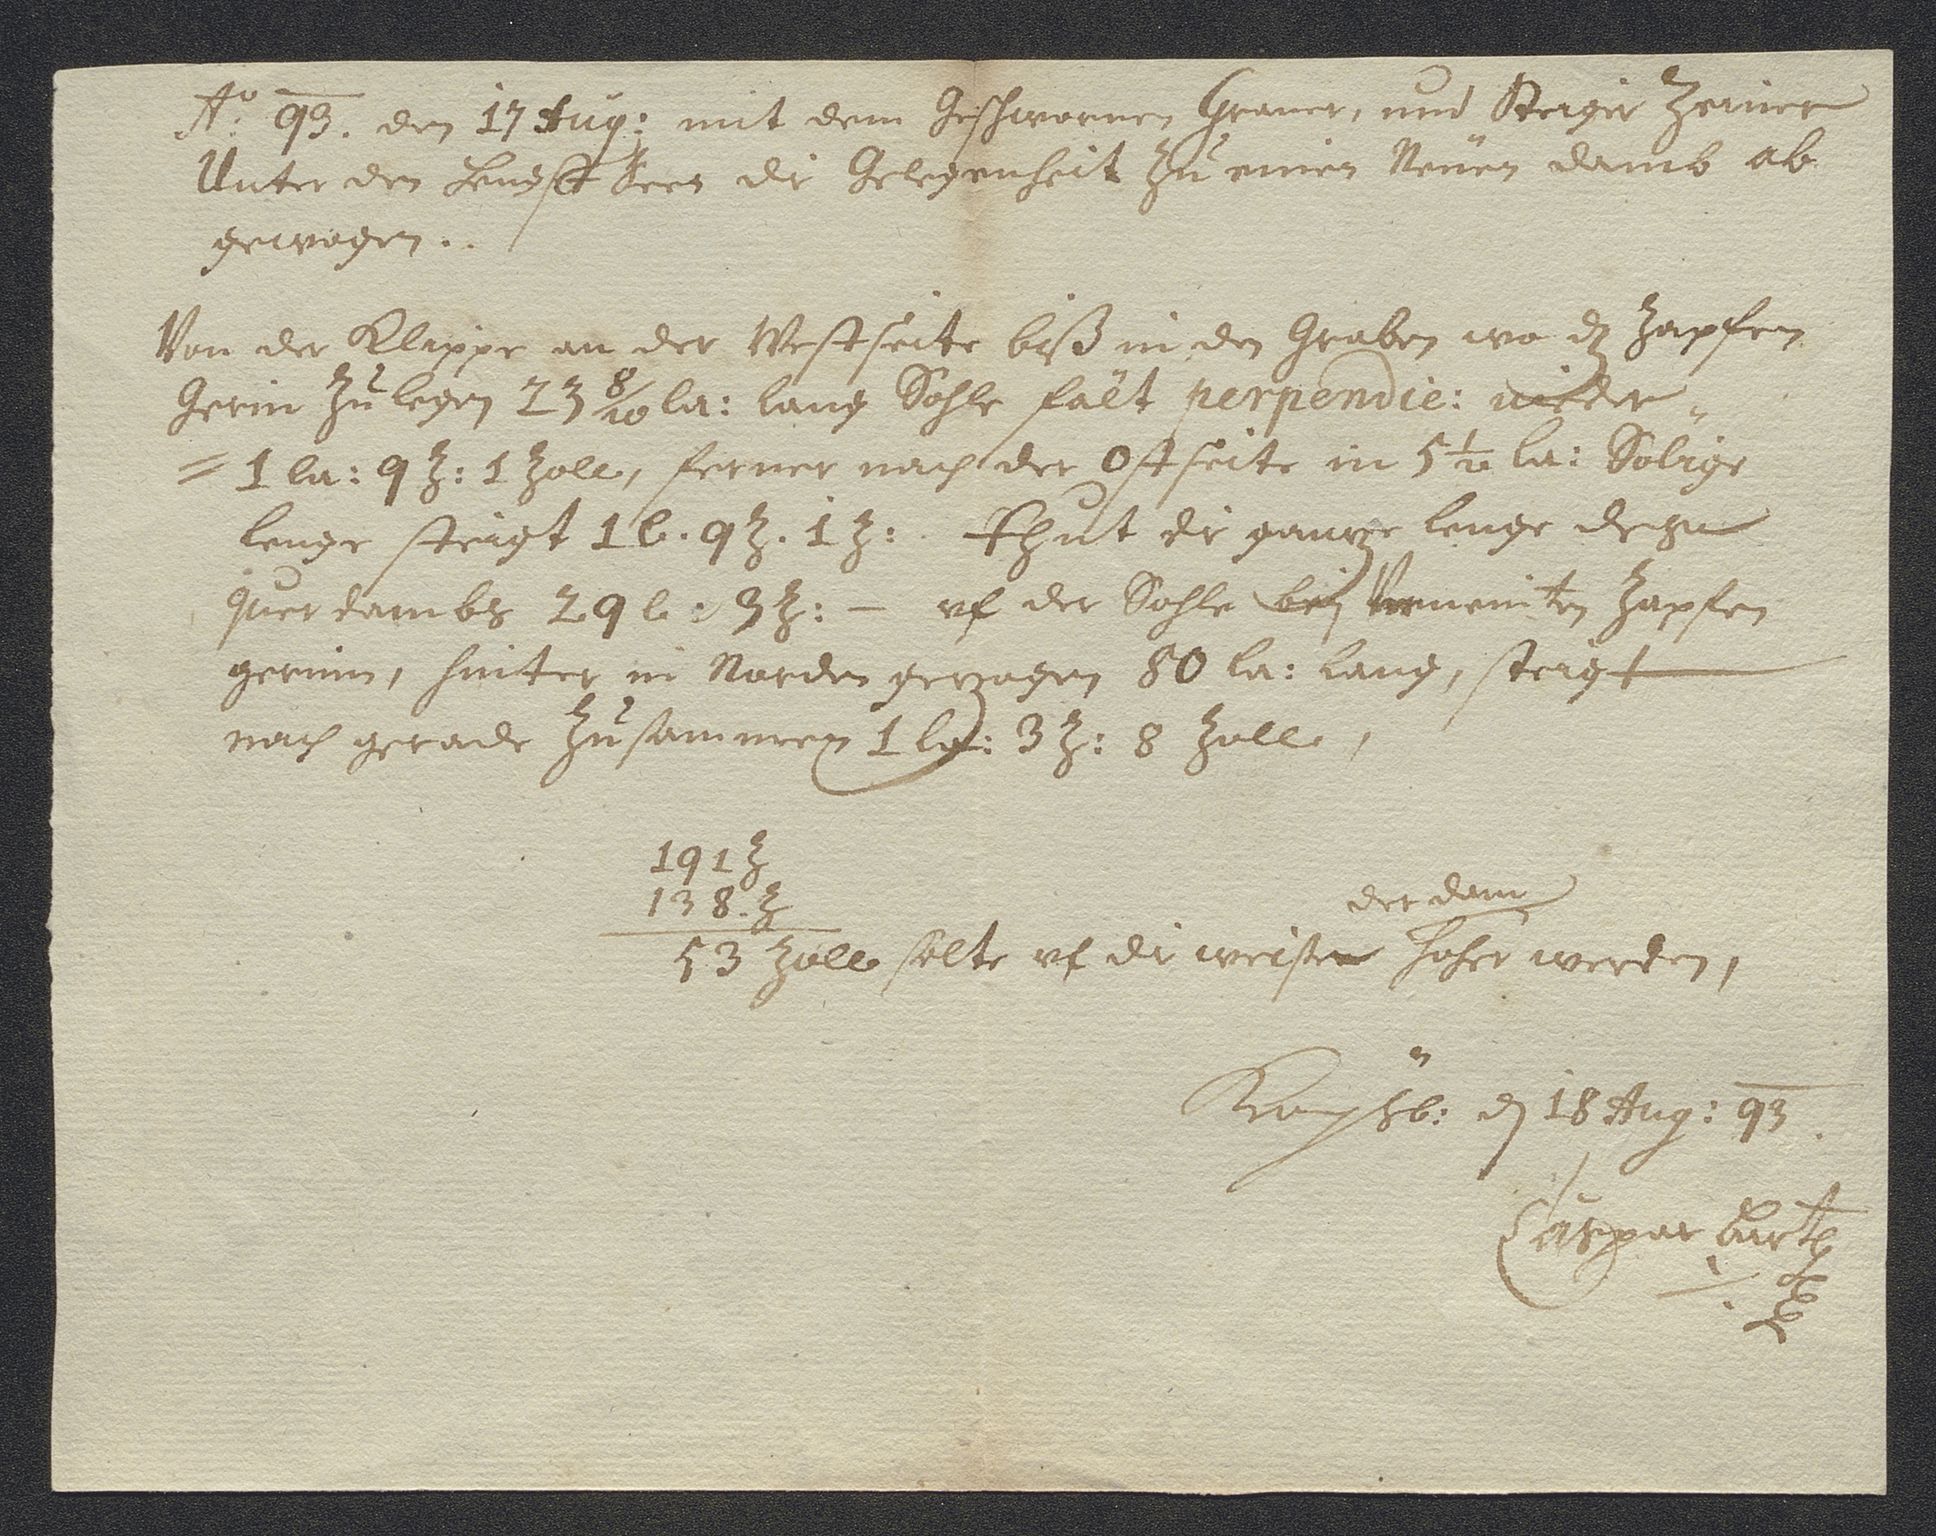 Aõ 93. den 17 Aug: mit dem Geschwornen Graner, und Steiger Zeiner
Unter den See die Gelegenheit Zu einen Neüen damb ab
gewogen..
Von der Klippe an der Westseite biß in den Graben wo dz Zapfen
Gerin Zu legen 23 8/10 la: lang Sohle fält perpendic: nieder
= 1 la: 9 Z: 1 Zoll, ferner nach der Ostseite in 5 1/2 la: Solige
lenge steigt 1 l. 9 Z. 1 Z: Thut die gantze lenge
quer dambs 29 l: 3 Z: — uf der Sohle bey Zapfen
gerinn, hinter in Norden gezogen 80 la: lang, steigt
nach gerade Zusammen 1 la: 3 Z: 8 Zoll,
191 Z
138. Z
der dam
53 Zoll solte uf die weise hoher werden,
d 18 Aug: 93.
Caspar Barth